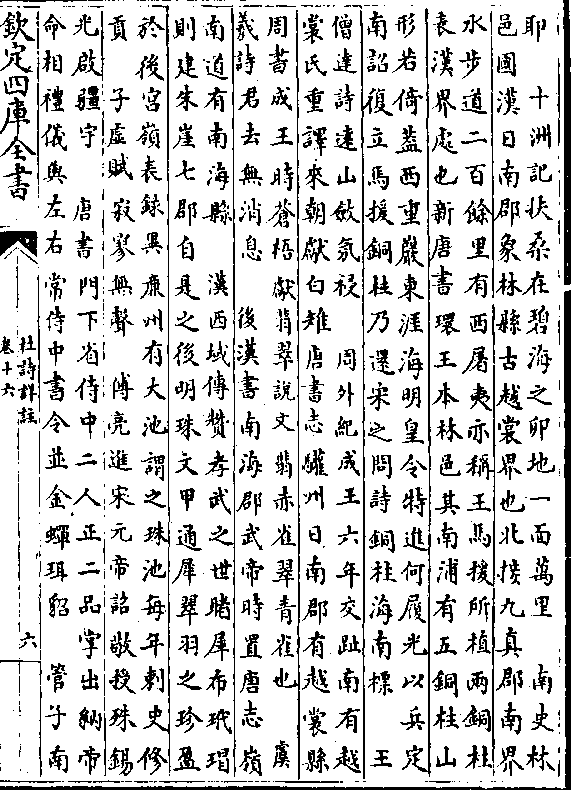 耶　十洲記扶桑在碧海之卯地一面萬里　南史林
邑國漢日南郡象林縣古越裳界也北接九真郡南界
水步道二百餘里有西屠夷亦稱王馬援所植兩銅柱
表漢界處也新唐書環王本林邑其南浦有五銅柱山
形若倚蓋西重巖東涯海明皇令特進何履光以兵定
南詔復立馬援銅柱乃還宋之問詩銅柱海南標　王
僧達詩遠山斂氛祲　周外紀成王六年交趾南有越
裳氏重譯來朝獻白雉唐書志驩州日南郡有越裳縣
周書成王時蒼梧獻翡翠說文翡赤雀翠青雀也　虞
羲詩君去無消息　後漢書南海郡武帝時置唐志嶺
南道有南海縣　漢西域傳贊孝武之世睹犀布玳瑁
則建朱崖七郡自是之後明珠文甲通犀翠羽之珍盈
於後宮嶺表錄異廉州有大池謂之珠池每年刺史修
貢　子虛賦寂寥無聲　傅亮進宋元帝詔敬授殊錫
光啟疆宇　唐書門下省侍中二人正二品掌出納帝
命相禮儀與左右常侍中書令並金蟬珥貂　管子南
欽定四庫全書
杜詩詳註
卷十六
六